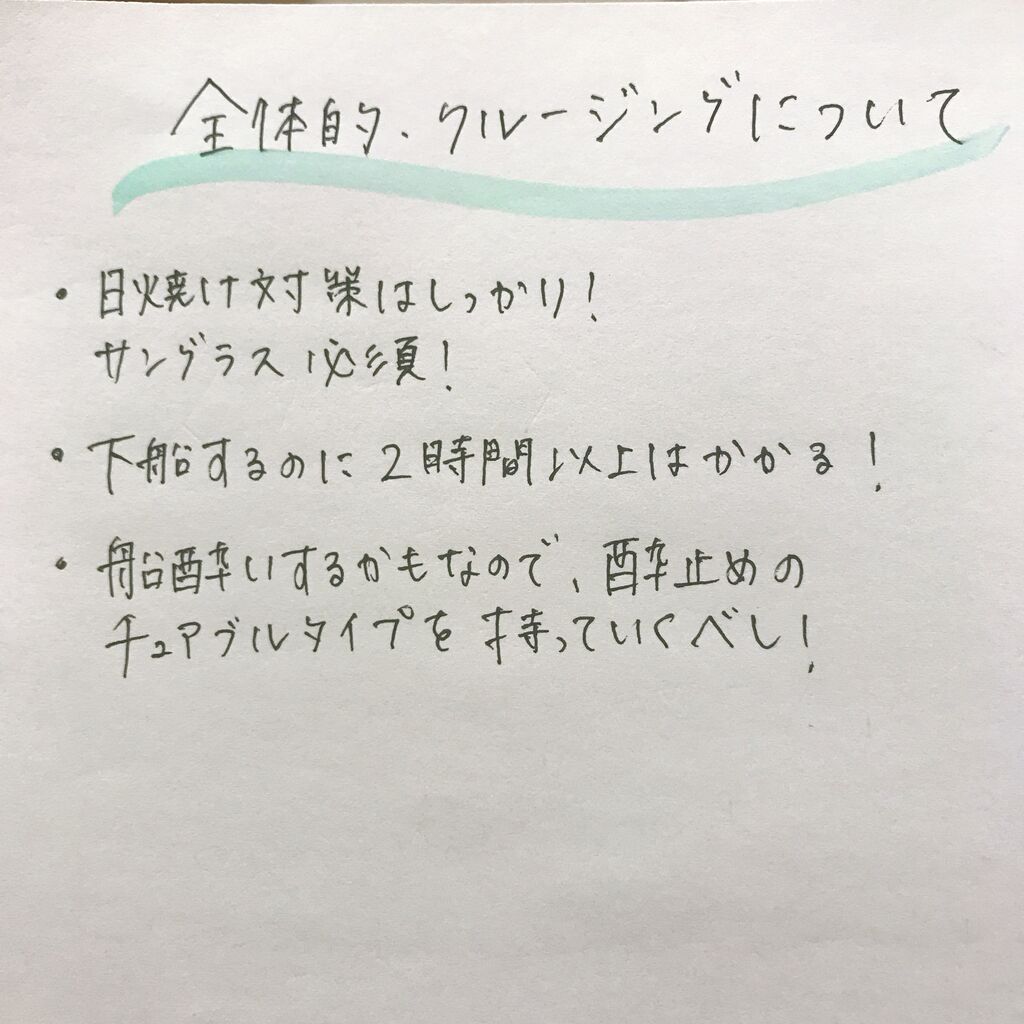 全体的、クルージングについて
・日焼け対策はしっかり!
サングラス必須!
・下船するのに2時間以上はかかる!
・船酔いするかもなので、酔止めの
チュアブルタイプを持っていくべし!